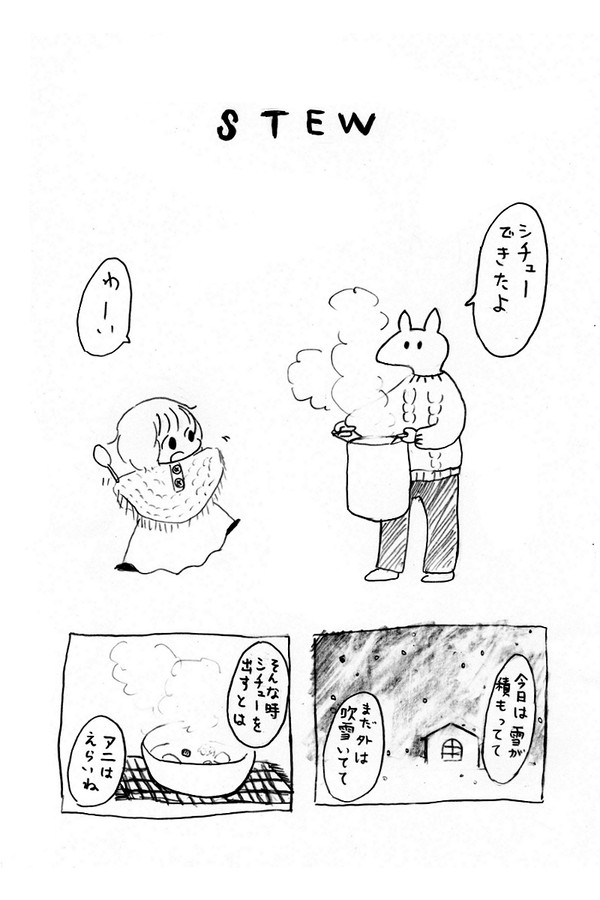 STEW
シチュー
できたよ
わーい
今日は雪が
積もってて
まだ外は
吹雪いてて
そんな時
シチューを
出すとは
アニは
えらいね